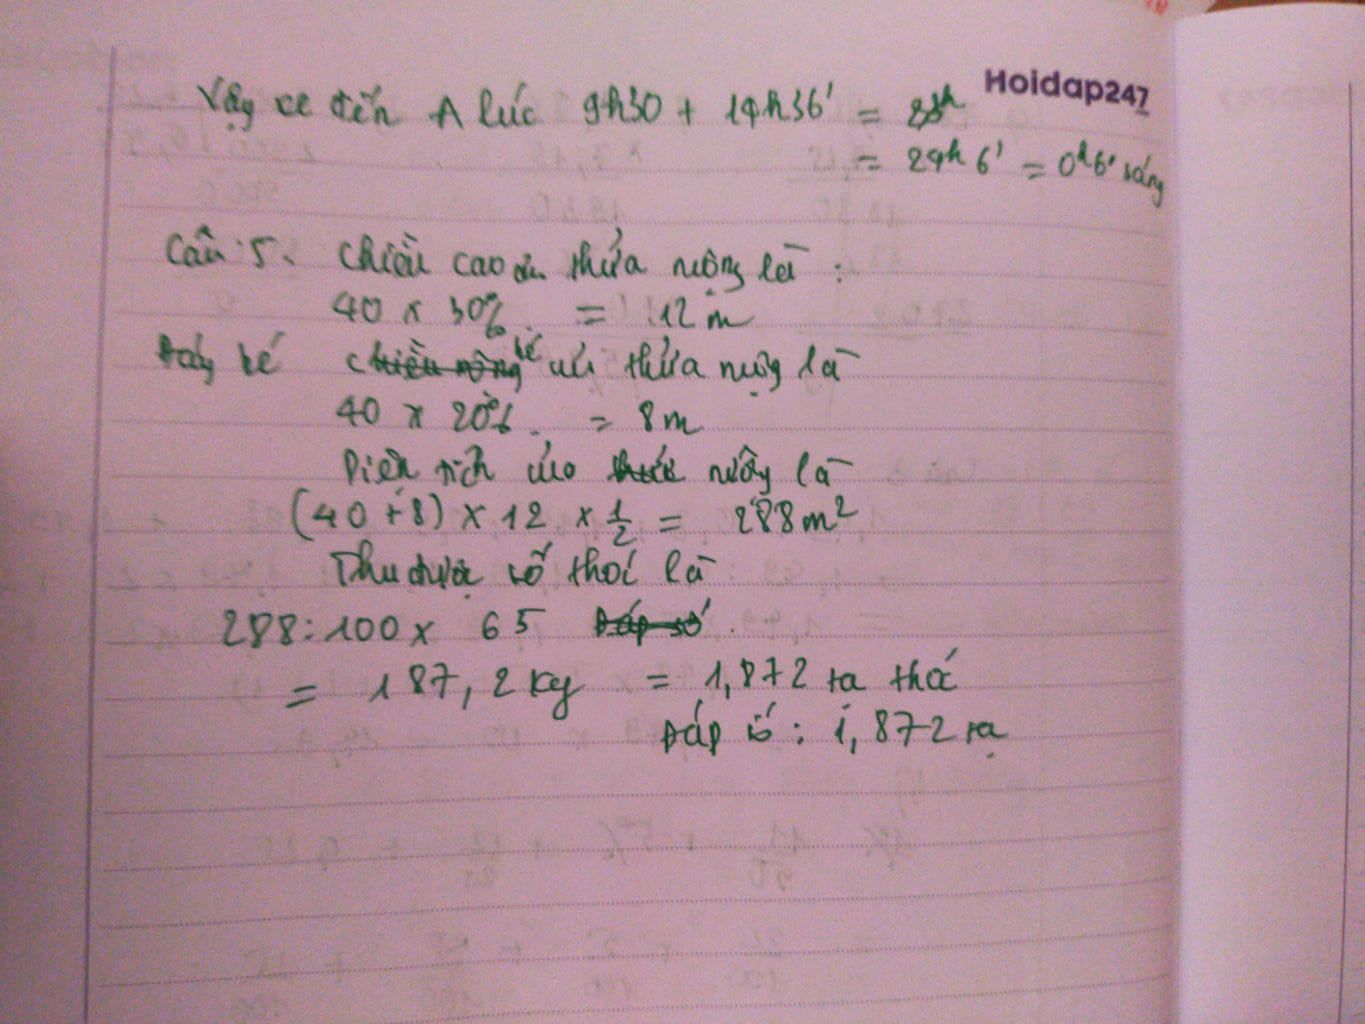 Hoidap247
Vậy xe đến A lúc 9h30 + 14h36' =
= 24h 6' = 0h6' sáng
Câu 5. Chiều cao của thửa ruộng là :
40 x 30% = 12 m
Đáy bé của thửa ruộng là
40 x 20% = 8m
Diện tích của ruộng là
(40 + 8) x 12 x 1/2 = 288m²
Thu được số thóc là
288 : 100 x 65 Đáp số
= 187,2 kg = 1,872 tạ thóc
Đáp số : 1,872 tạ